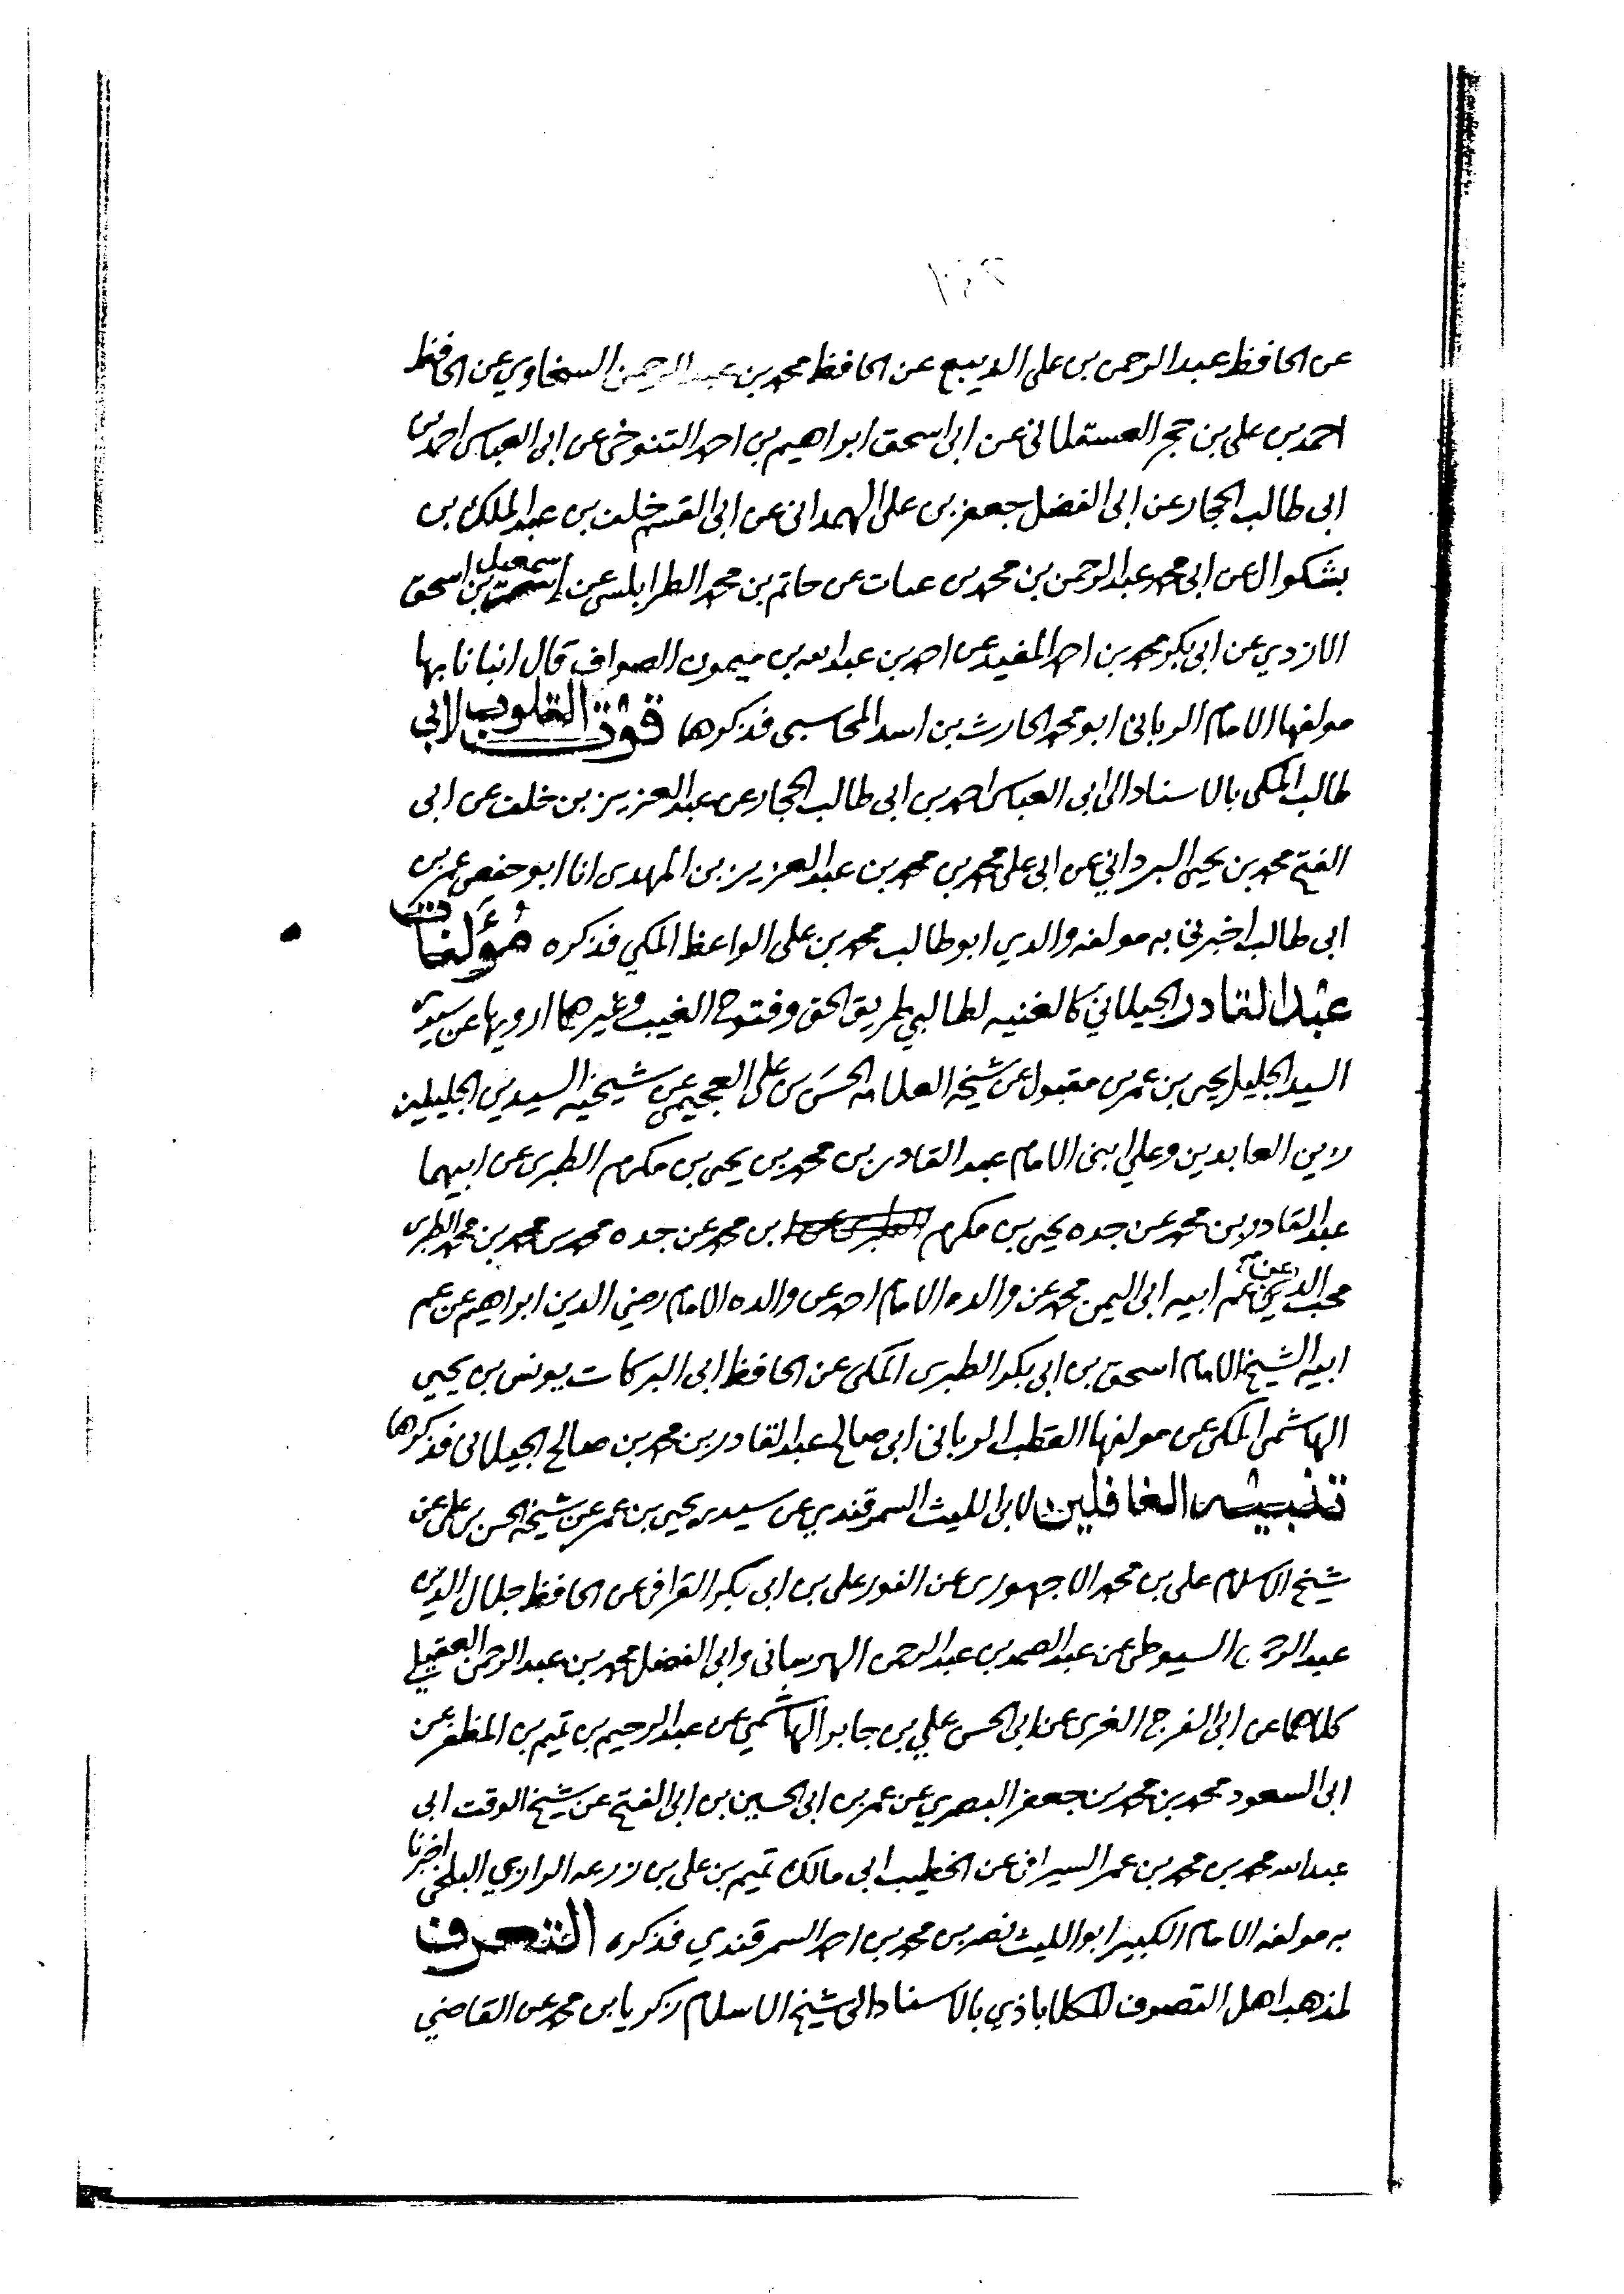 عن الحافظ عبد الرحمن بن على الديبع عن الحافظ محمد بن عبد الرحمن السخاوي عن الحافظ
احمد بن على بن حجر العسقلانى عن ابى اسحق ابراهيم بن احمد التنوخى عن ابى العباس احمد بن
ابى طالب الحجار عن ابى الفضل جعفر بن على الهمدانى عن ابى القسم خلف بن عبد الملك بن
بشكوال عن ابى محمد عبد الرحمن بن محمد بن عتاب عن حاتم بن محمد الطرابلسى عن اسمعيل بن اسحق
الازدي عن ابى بكر محمد بن احمد المفيد عن احمد بن عبد الله بن ميمون الصواف قال انبانا بها
مولفها الامام الربانى ابو محمد الحارث بن اسد المحاسبى فذكرها قوت القلوب لابي
طالب المكى بالاسناد الى ابى العباس احمد بن ابى طالب الحجار عن عبد العزيز بن خلف عن ابى
الفتح محمد بن يحيى البرداني عن ابى على محمد بن محمد بن عبد العزيز بن المهدى انا ابو حفص عمر بن
ابى طالب اخبرنى به مولفه والدي ابو طالب محمد بن على الواعظ المكي فذكره مؤلفات
عبد القادر الجيلاني كالغنيه لطالبي طريق الحق وفتوح الغيب وغيرهما ارويها عن سيدى
السيد الجليل يحيى بن عمر بن مقبول عن شيخه العلامه الحسن بن على العجيمى عن شيخيه السيدين الجليلين
زين العابدين وعلي ابنى الامام عبد القادر بن محمد بن يحيى بن مكرم الطبرى عن ابيهما
عبد القادر بن محمد عن جده يحيى بن مكرم بن محمد عن جده محمد بن محمد بن محمد الطبرى
محب الدين عن عم ابيه ابى اليمن محمد عن والده الامام احمد عن والده الامام رضي الدين ابراهيم عن عم
ابيه الشيخ الامام اسحق بن ابى بكر الطبرى المكى عن الحافظ ابى البركات يونس بن يحيى
الهاشمى المكى عن مولفها القطب الربانى ابى صالح عبد القادر بن محمد بن صالح الجيلانى فذكرها
تنبيه الغافلين لابى الليث السمرقندي عن سيدى يحيى بن عمر عن شيخه الحسن بن على عن
شيخ الاسلام على بن محمد الاجهورى عن النور على بن ابى بكر القرافى عن الحافظ جلال الدين
عبد الرحمن السيوطى عن عبد الصمد بن عبد الرحمن الهرسانى وابى الفضل محمد بن عبد الرحمن العقيلي
كلاهما عن ابى الفرج الغزى عن ابى الحسن علي بن جابر الهاشمي عن عبد الرحيم بن تميم بن المظفر عن
ابى السعود محمد بن محمد بن جعفر البصري عن عمر بن ابى الحسين بن ابى الفتح عن شيخ الوقت ابى
عبد الله محمد بن محمد بن عمر السيرافى عن الخطيب ابى مالك تميم بن على بن زرعه الرازي البلخى اخبرنا
به مولفه الامام الكبير ابو الليث نصر بن محمد بن احمد السمرقندي فذكره التعرف
لمذهب اهل التصوف للكلاباذي بالاسناد الى شيخ الاسلام زكريا بن محمد عن القاضي